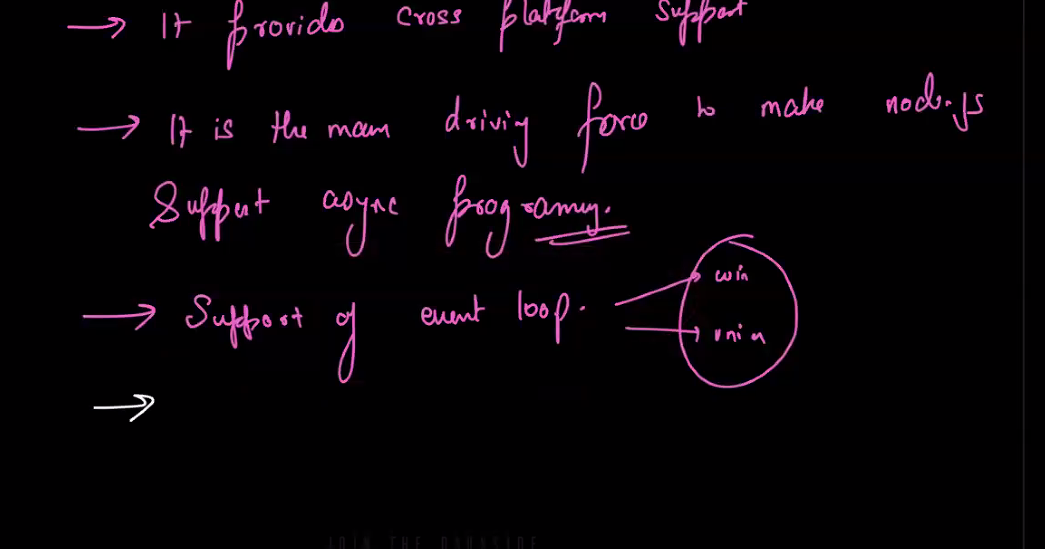 → It provides cross platform support
→ It is the main driving force to make node.js
Support async programing.
→ Support of event loop.
win
unix
→